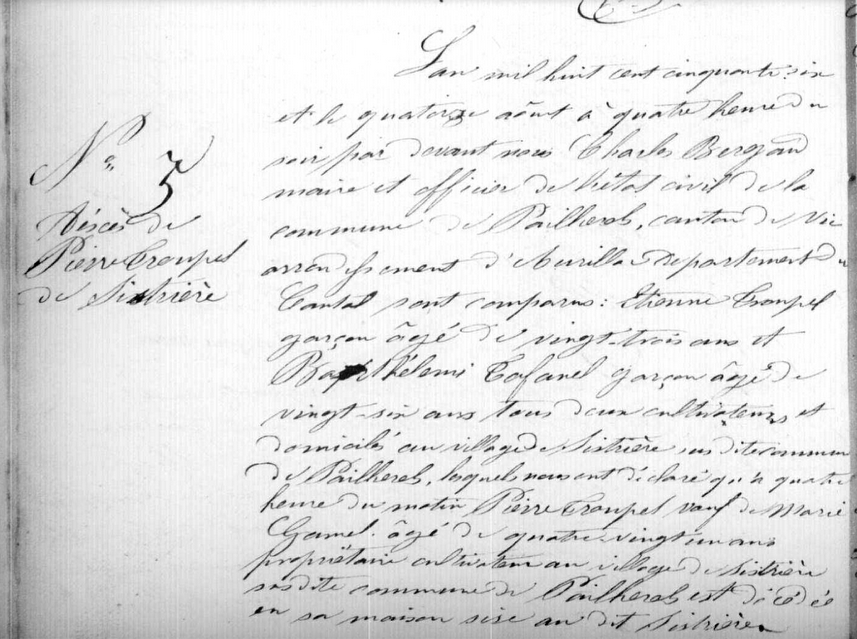 Nº 5
Décès de
Pierre Troupel
de Sistrière
L'an mil huit cent cinquante six
et le quatorze août à quatre heure du
soir par devant nous Charles
maire et officier de l'état civil de la
commune de Pailherols, canton de Vic
arrondissement d'Aurillac departement du
Cantal sont comparus : Etienne Troupel
garçon âgé de vingt-trois ans et
Barthélemi Tofanel garçon âgé de
vingt-six ans tous deux cultivateurs et
domiciliés au village de Sistrière susdite commune
de Pailherols, lesquels nous ont déclaré qu'à quatre
heure du matin Pierre Troupel veuf de Marie
Gamel âgé de quatre-vingt un ans
propriétaire cultivateur au village de Sistrière
susdite commune de Pailherols est décédé
en sa maison sise au dit Sistrière